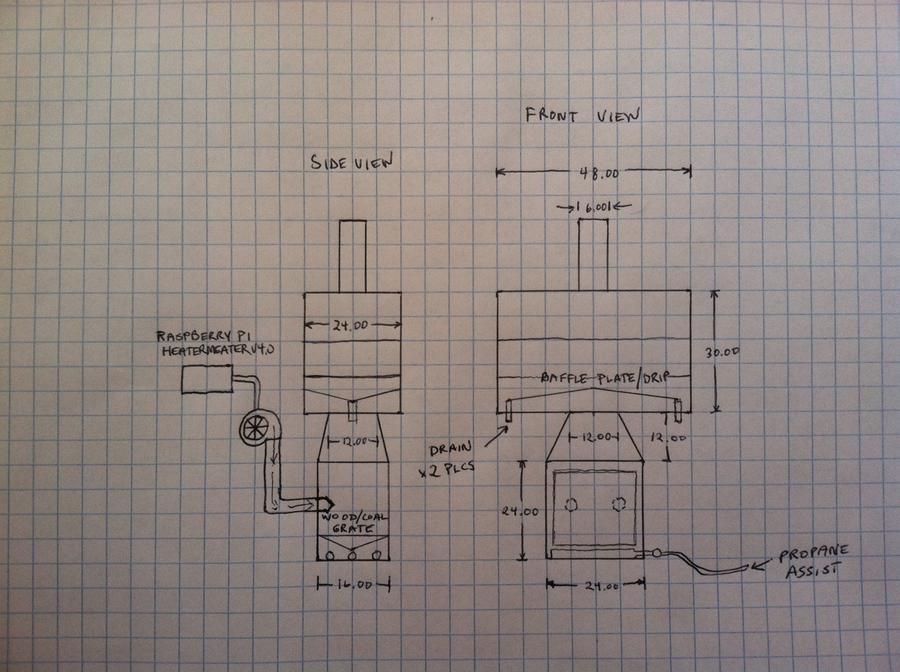 FRONT VIEW
SIDE VIEW
48.00
6.00
24.00
RASPBERRY PI
HEATERMEATER V4.0
30.00
BAFFLE PLATE/DRIP
12.00
12.00
12.00
DRAIN
x2 PLCS
24.00
WOOD/COAL
GRATE
PROPANE
ASSIST
16.00
24.00